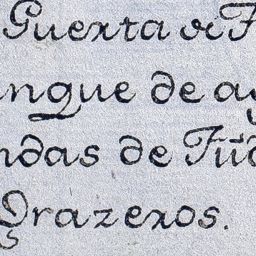 Guerta de F
nque de a
ndas de Fũd
Brazeros.